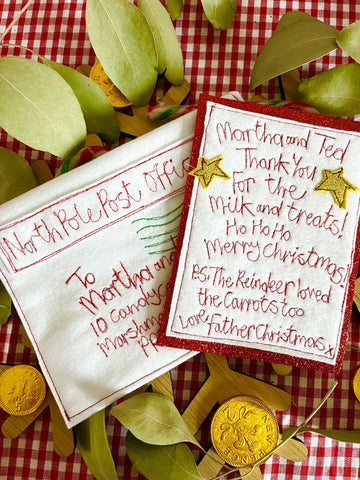 North Pole Post Offi
To
Martha and
10 Candyc
Marshm
Martha and Ted
Thank You
For the
Milk and treats!
Ho Ho Ho
Merry Christmas!
P.S: The Reindeer loved
the Carrots too
Love, Father Christmas x